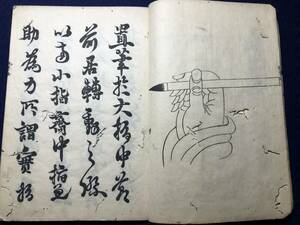 置筆於大指中節
前居轉動之際
以小指齊中指兼
助為力所謂實指